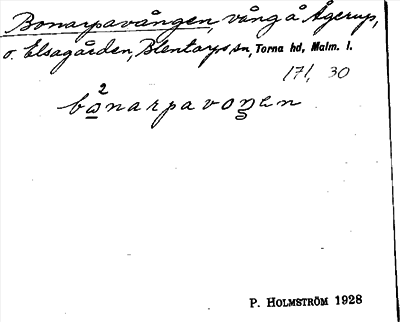 Bonarpavången, vång å Ågerup,
o. Elsagården, Blentarps sn, Torna hd, Malm. l.
171, 30
2
bωnarpavoŋ̲en
P. HOLMSTRÖM 1928